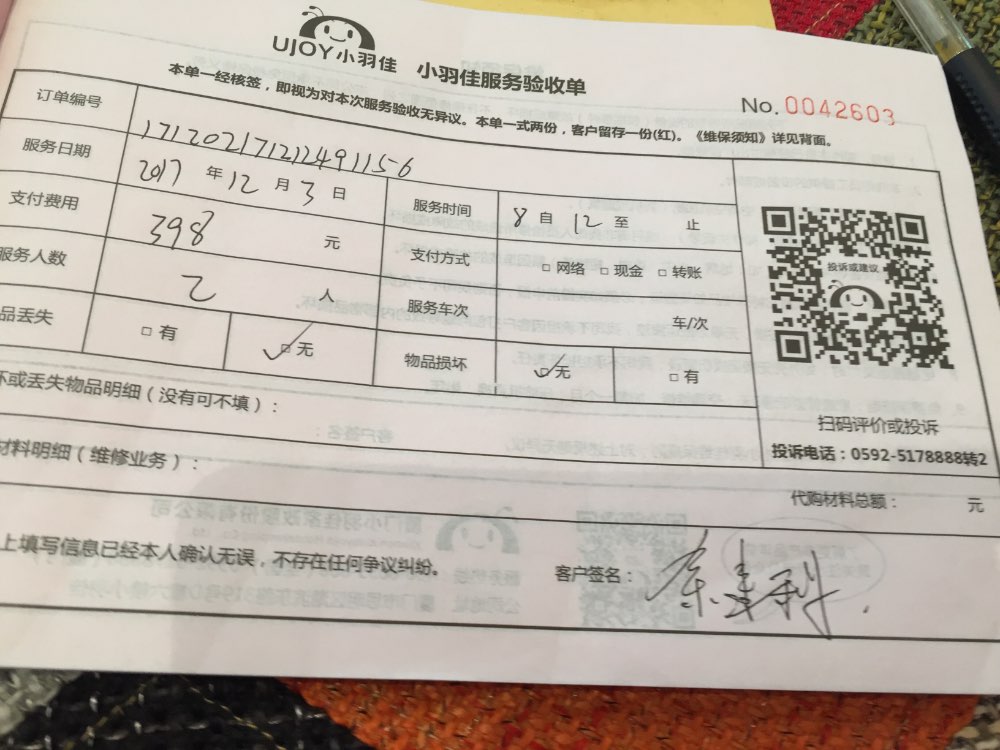 UJOY小羽佳 小羽佳服务验收单
No. 0042603
本单一经核签，即视为对本次服务验收无异议。本单一式两份，客户留存一份(红)。《维保须知》详见背面。
订单编号 171202171212491156
服务日期 2017 年 12 月 3 日 服务时间 8 自 12 至 止
支付费用 398 元 支付方式 □ 网络 □ 现金 □ 转账
服务人数 2 人 服务车次 车/次
品丢失 □ 有 ✓□ 无 物品损坏 ✓□ 无 □ 有
投诉或建议
扫码评价或投诉
投诉电话：0592-5178888转2
坏或丢失物品明细（没有可不填）：
材料明细（维修业务）：
代购材料总额： 元
上填写信息已经本人确认无误，不存在任何争议纠纷。 客户签名：